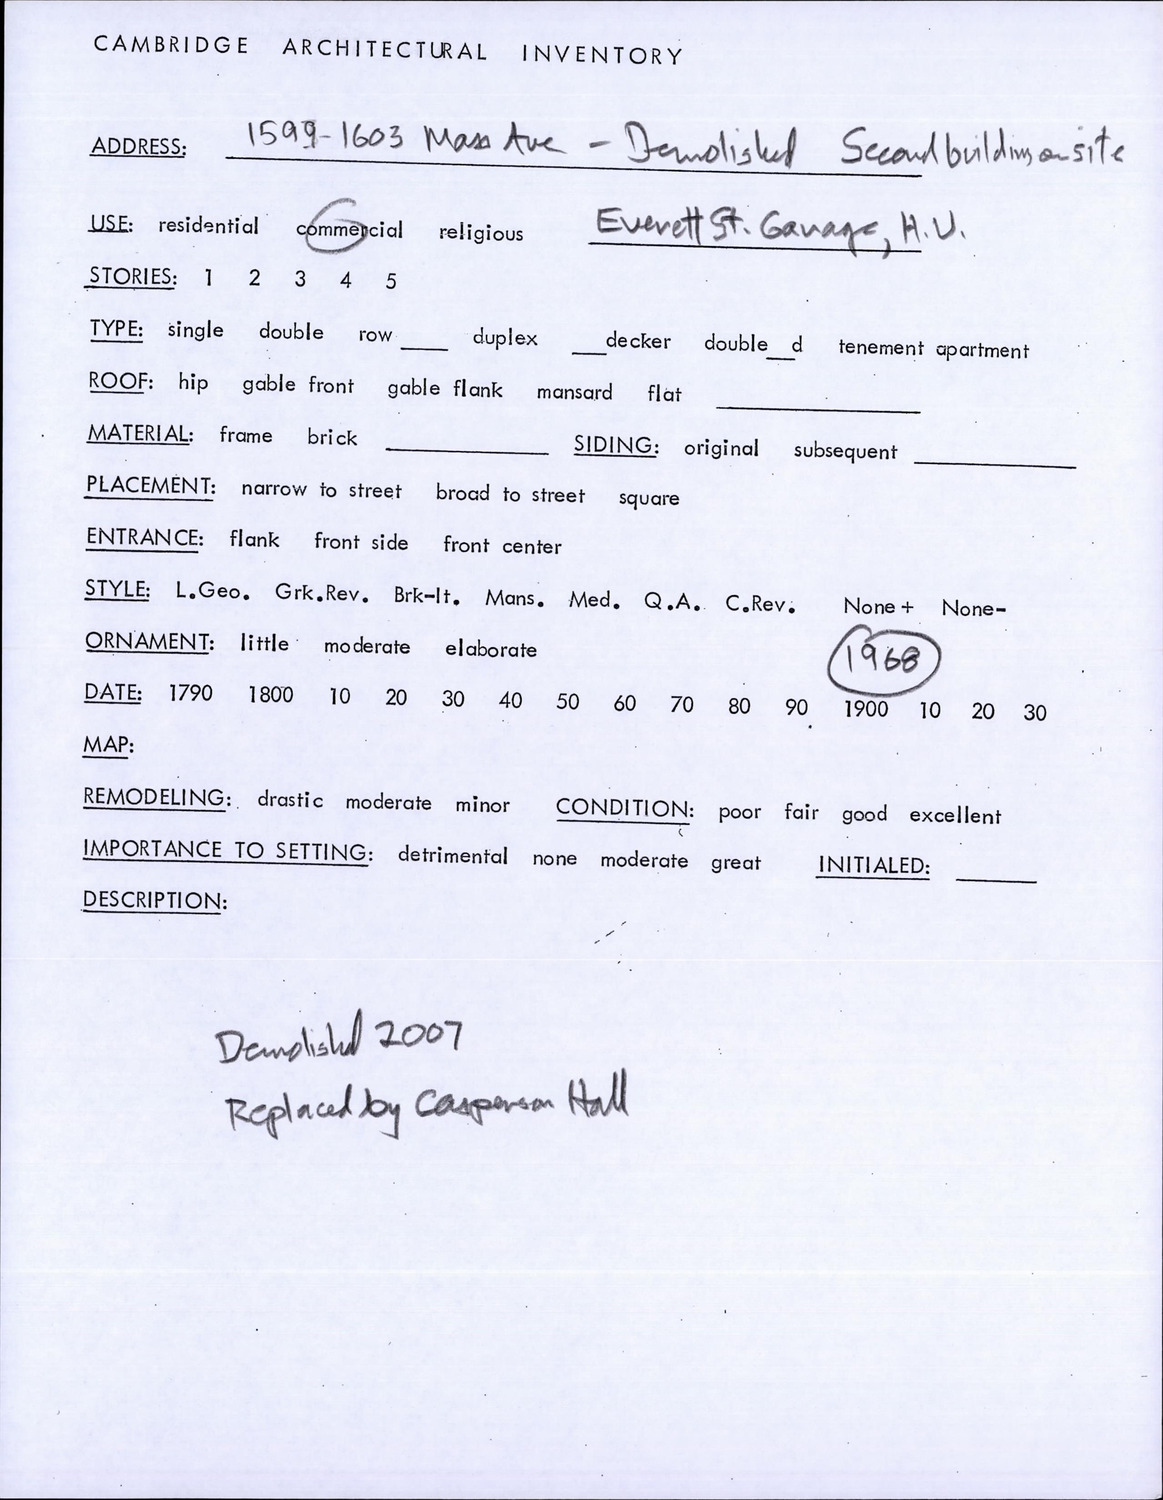 CAMBRIDGE ARCHITECTURAL INVENTORY
ADDRESS: 1599-1603 Mass Ave - Demolished Second building on site
USE: residential commercial religious Everett St. Garage, H.U.
STORIES: 1 2 3 4 5
TYPE: single double row ____ duplex ___decker double__d tenement apartment
ROOF: hip gable front gable flank mansard flat
MATERIAL: frame brick ____ SIDING: original subsequent ____
PLACEMENT: narrow to street broad to street square
ENTRANCE: flank front side front center
STYLE: L.Geo. Grk.Rev. Brk-It. Mans. Med. Q.A. C.Rev. None+ None-
ORNAMENT: little moderate elaborate 1968
DATE: 1790 1800 10 20 30 40 50 60 70 80 90 1900 10 20 30
MAP:
REMODELING: drastic moderate minor CONDITION: poor fair good excellent
IMPORTANCE TO SETTING: detrimental none moderate great INITIALED: ____
DESCRIPTION:
Demolished 2007
Replaced by Casperson Hall